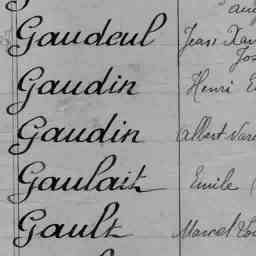 Gaudeul Jean
Gaudin Henri
Gaudin Albert
Gaulait Emile
Gault Marcel